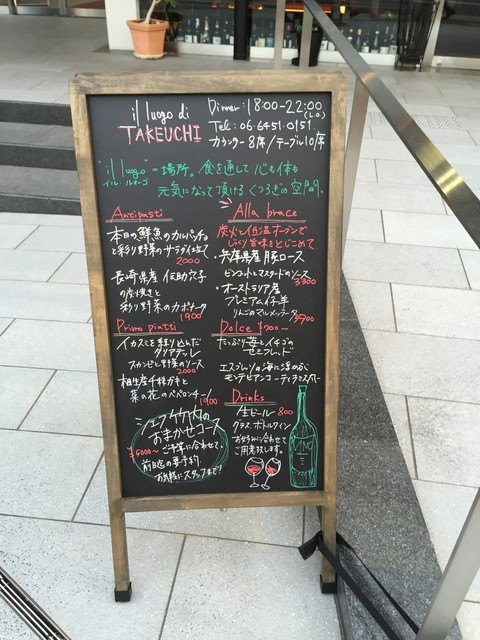 il luogo di
TAKEUCHI
Dinner: 18:00-22:00
(L.O)
Tel: 06.6451.0151
カウンター8席/テーブル10席
"il luogo" = 場所。食を通して心も体も
イル ルオーゴ
元気になって頂けるくつろぎの空間。
Antipasti
本日の鮮魚のカルパッチョ
と彩り野菜のサラダ仕立て
2000
長崎県産 伝助穴子
の炭焼きと
彩り野菜のカポナータ
1900
Primo piatti
イカスミを練り込んだ
タリアテッレ
スカンピと野菜のソース
2000
相生産牡蠣と
菜の花のペペロンチーノ
1900
シェフ竹内の
おまかせコース
¥5000~ ご予算に合わせて。
前日迄の要予約
お気軽にスタッフまで!
Alla brace
炭火と低温オーブンで
じっくり旨味をとじこめて
・兵庫県産豚ロース
ビンコットとマスタードのソース
3300
・オーストラリア産
プレミアム仔羊
りんごのマルメッラータ
3700
Dolce ¥700~
たっぷり苺とイチゴの
セミフレッド
エスプレッソの海に浮かぶ
モンテビアンコ ティラミスetc
Drinks
生ビール 800
グラス、ボトルワイン
お好みに合わせて
ご用意致します。
VINO